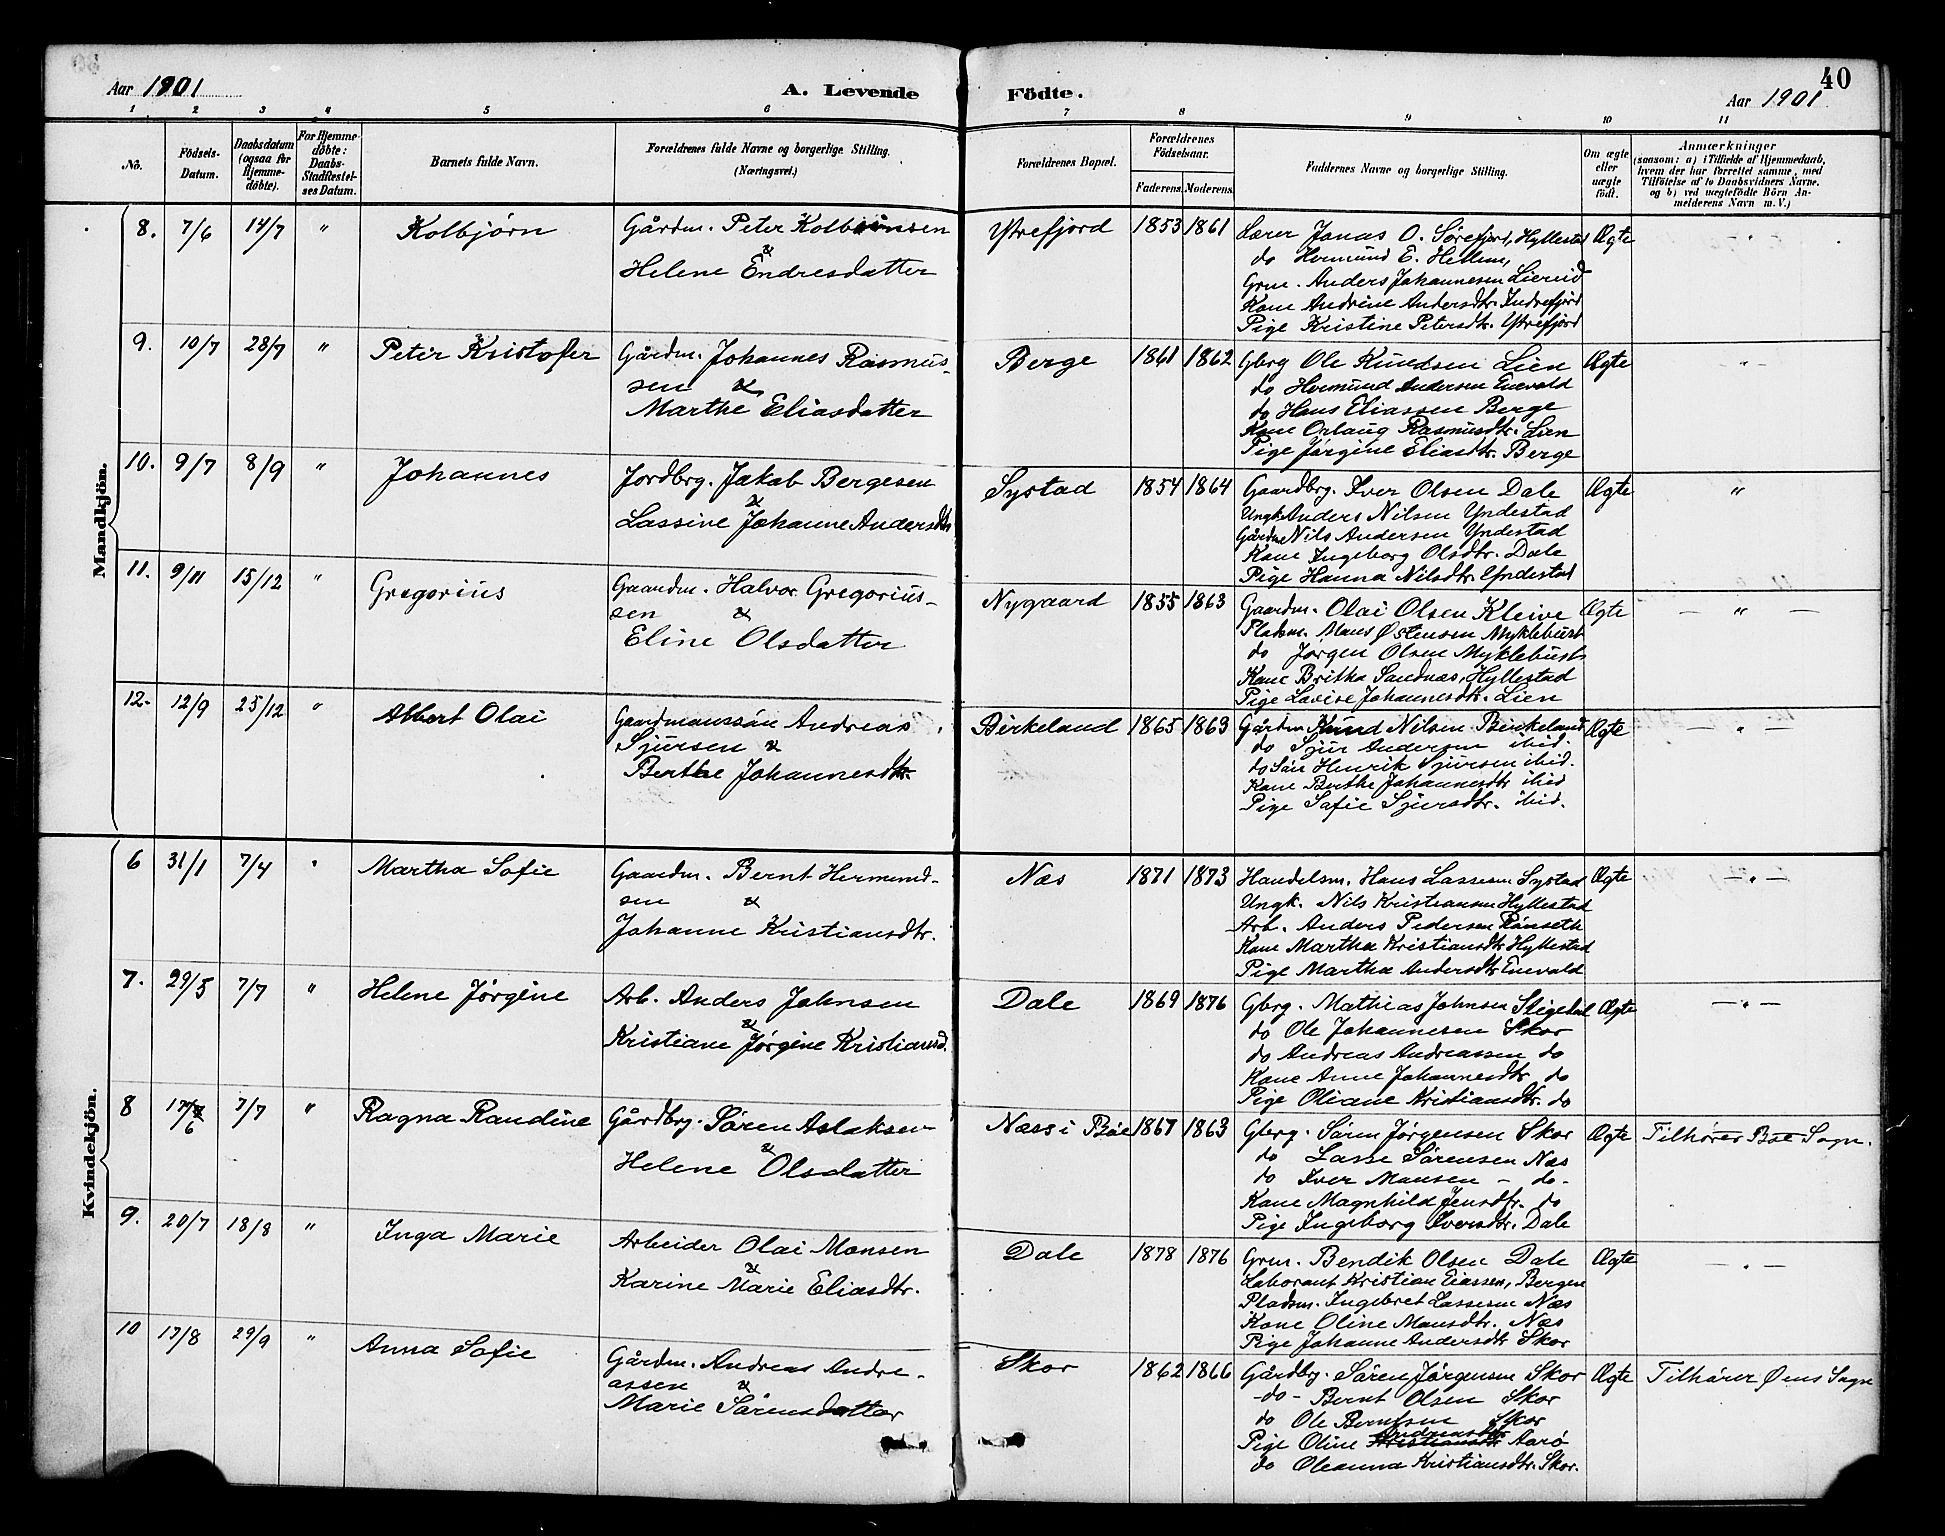 Aar 1901
A. Levende Födte.
Aar 1901
40
1 2 3 4 5 6 7 8 9 10 11
No.
Födsels-Datum.
Daabsdatum (ogsaa for Hjemme-döbte).
For Hjemme-döbte: Daabs-Stadfestel-ses Datum.
Barnets fulde Navn.
Forældrenes fulde Navne og borgerlige Stilling. (Næringsvei.)
Forældrenes Bopæl.
Forældrenes Födselsaar.
Faderens. Moderens.
Faddernes Navne og borgerlige Stilling.
Om ægte eller uægte födt.
Anmærkninger
(saasom: a) i Tilfælde af Hjemmedaab,
hvem der har forrettet samme, med
Tilföielse af to Daabsvidners Navne.
og b) ved uægtefödte Börn An-
melderens Navn m. V.)
Mandkjön.
8. 7/6 14/7 " Kolbjørn
Gårdm. Peter Kolbeinsen
&
Helene Endresdatter
Ytrefjord 1853 1861
Lærer Jonas O. Sørefjord, Hyllestad
do Hermund E. Hellem,
Grm. Anders Johannesen Liereid
Kone Andrine Andersdtr. Indrefjord
Pige Kristine Petersdtr. Ytrefjord
Ægte "
9. 10/7 28/7 " Peter Kristofer
Gårdm. Johannes Rasmus-
sen &
Marthe Eliasdatter
Berge 1861 1862
Gbrg Ole Knudsen Lien
do Hermund Andersen Enevald
do Hans Eliassen Berge
Kone Orlaug Rasmusdtr. Lien
Pige Jørgine Eliasdtr. Berge
Ægte "
10. 9/7 8/9 " Johannes
Jordbrg. Jakob Bergesen
&
Lassine Johanne Andersdtr
Systad 1854 1864
Gaardbrg. Iver Olsen Dale
Ungk Anders Nilsen Yndestad
Gårdm Nils Andersen Yndestad
Kone Ingeborg Olsdtr. Dale
Pige Hanna Nilsdtr. Yndestad
Ægte "
11. 9/11 15/12 " Gregorius
Gaardm. Halvor Gregorius-
sen &
Eline Olsdatter
Nygaard 1855 1863
Gaardm. Olai Olsen Kleive
Pladsm. Mons Østensen Myklebust
do Jørgen Olsen Myklebust
Kone Britha Sandnæs, Hyllestad
Pige Lovise Johannesdtr. Lien
Ægte — " —
12. 12/9 25/12 " Albert Olai
Gaardmanssøn Andreas
Sjursen &
Berthe Johannesdtr.
Birkeland 1865 1863
Gårdm Knud Nilsen Birkeland
do Sjur Andersen ibid.
do Søn Henrik Sjursen ibid.
Kone Berthe Johannesdtr ibid
Pige Sofie Sjursdtr. ibid.
Ægte — " —
Kvindekjön.
6 31/1 7/4 " Martha Sofie
Gaardm. Bernt Hermund-
sen &
Johanne Kristiansdtr.
Næs 1871 1873
Handelsm. Hans Lassesen Systad
Ungk. Nils Kristiansen Hyllestad
Arb. Anders Pedersen Rønseth
Kone Martha Kristiansdtr Hyllestad
Pige Martha Andersdtr Enevald
Ægte — " —
7. 29/5 7/7 " Helene Jørgine
Arb. Anders Johnsen
&
Kristiane Jørgine Kristiansd.
Dale 1869 1876
Gbrg. Mathias Johnsen Stigedal
do Ole Johannesen Skor
do Andreas Andreassen do
Kone Anne Johannesdtr. do
Pige Oliane Kristiansdtr. do
Ægte — " —
8 17/6 7/7 " Ragna Randine
Gårdbrg. Søren Aslaksen
&
Helene Olsdatter
Næss i Bøe 1867 1863
Gbrg. Søren Jørgensen Skor
do Lasse Sørensen Næs
do Iver Monsen – do–
Kone Magnhild Jensdtr. do
Pige Ingeborg Iversdtr. Dale
Ægte Tilhører Bøe Sogn.
9. 20/7 18/8 " Inga Marie
Arbeider Olai Monsen
&
Karine Marie Eliasdtr.
Dale 1878 1876
Grm. Bendik Olsen Dale
Laborant Kristian Eiassen, Bergen
Pladsm. Ingebret Lassesen Næs
Kone Oline Monsdtr. Næs
Pige Johanne Andersdtr Skor
Ægte — " —
10 17/8 29/9 " Anna Sofie
Gårdm. Andreas Andre-
assen &
Marie Sørensdatter
Skor 1862 1866
Gårdbrg. Søren Jørgensen Skor
–do– Bernt Olsen Skor
do Ole Berntsen Skor
Pige Oline Andreasdtr Aarø
do Oleanna Kristiansdtr. Skor.
Ægte Tilhører Øens Sogn